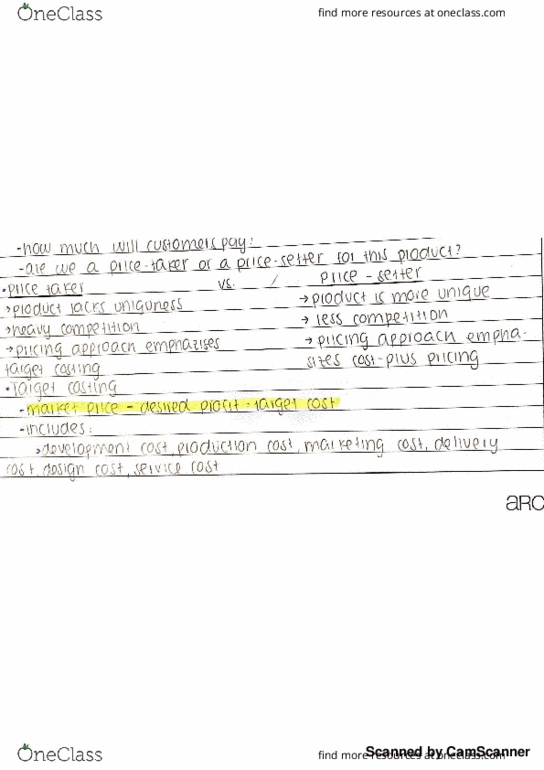 OneClass
find more resources at oneclass.com
-how much will customers pay?
-are we a price-taker or a price-setter for this product?
•price taker vs. / price-setter
→product lacks uniquness →product is more unique
→heavy competition → less competition
→pricing approach emphasises → pricing approach empha-
target costing sizes cost-plus pricing
•Target costing
-market price - desired profit = target cost
-includes:
→development cost, production cost, marketing cost, delivery
cost, design cost, service cost
arc
OneClass
find more resources at oneclass.com
Scanned by CamScanner